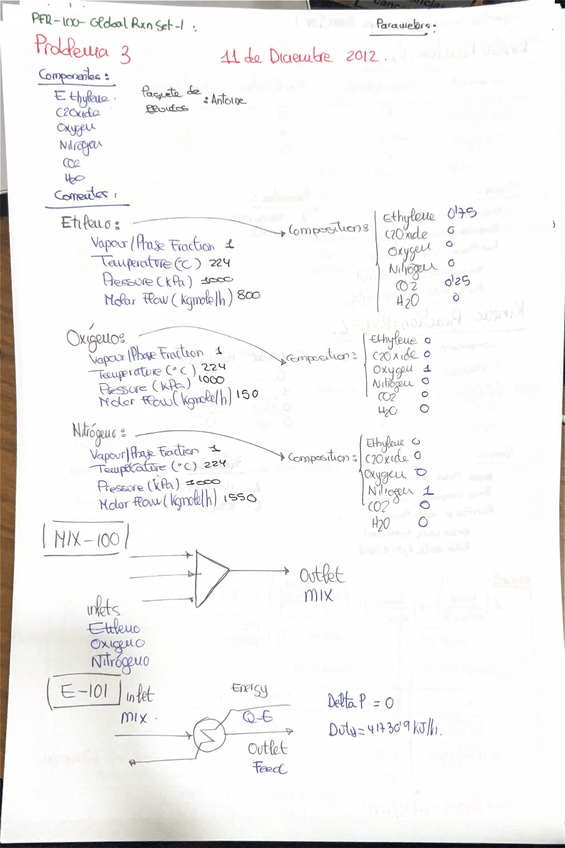 PFR-100-Global Rxn Set-1.
Parameters:
Problema 3
11 de Diciembre 2012.
Componentes:
Ethylene.
C2Oxide
Oxygen
Nitrogen
CO2
H2O
Paquete de
: Antoine
Corrientes:
Etileno:
Vapour/Phase Fraction 1
Temperature (°C) 224
Pressure (kPa) 1000
Molar Flow (kgmole/h) 800
Composition:
Ethylene 0'75
C2Oxide 0
Oxygen 0
Nitrogen 0
CO2 0'25
H2O 0
Oxígeno:
Vapour/Phase Fraction 1
Temperature (°C) 224
Pressure (kPa) 1000
Molar Flow (kgmole/h) 150
Composition:
Ethylene 0
C2Oxide 0
Oxygen 1
Nitrogen 0
CO2 0
H2O 0
Nitrógeno:
Vapour/Phase Fraction 1
Temperature (°C) 224
Pressure (kPa) 1000
Molar Flow (kgmole/h) 1550
Composition:
Ethylene 0
C2Oxide 0
Oxygen 0
Nitrogen 1
CO2 0
H2O 0
MIX-100
Outlet
MIX
inlets
Etileno
Oxigeno
Nitrógeno
E-101
Inlet
MIX.
Energy
Q-E
Outlet
Feed
Delta P = 0
Duty = 417309 kJ/h.